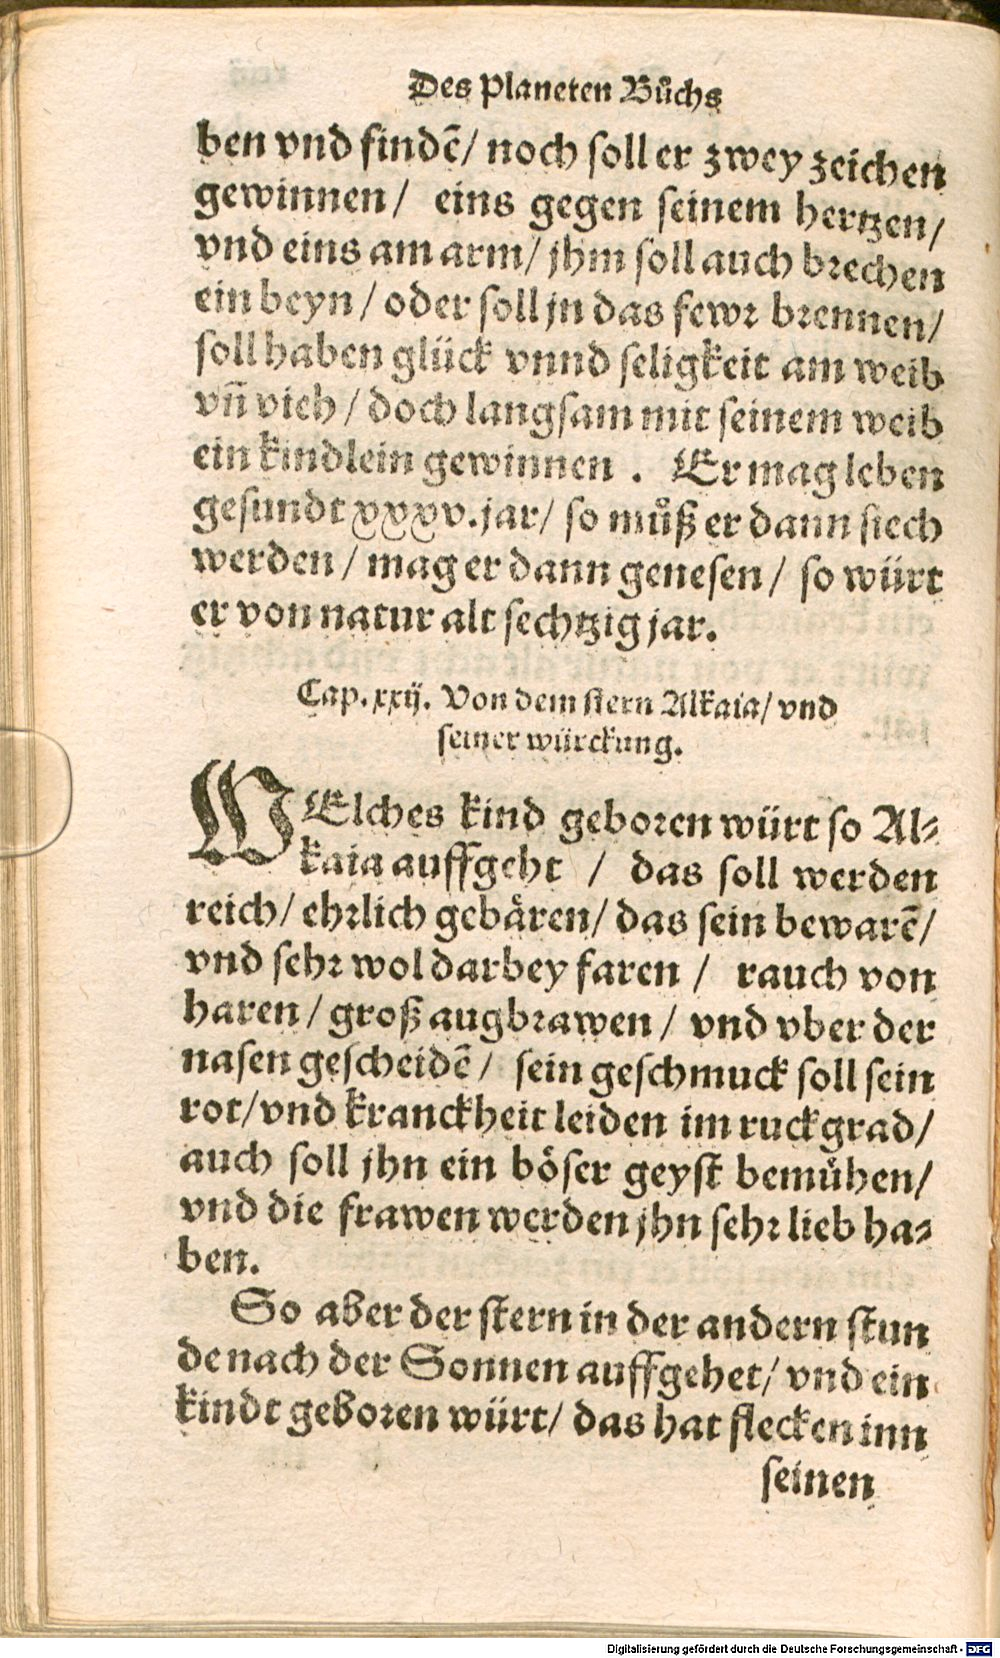 Des Planeten Bůchs
ben vnd findẽ/ noch soll er zwey zeichen
gewinnen/ eins gegen seinem hertzen/
vnd eins am arm/ jhm soll auch brechen
ein beyn/ oder soll jn das fewr brennen/
soll haben glück vnnd seligkeit am weib
vñ vieh/ doch langsam mit seinem weib
ein kindlein gewinnen. Er mag leben
gesundt xxxv. jar/ so můß er dann siech
werden/ mag er dann genesen/ so würt
er von natur alt sechtzig jar.
Cap. xxij. Von dem stern Alkaia/ vnd
seiner würckung.
WElches kind geboren würt so Al⸗
kaia auffgeht / das soll werden
reich/ ehrlich gebåren/ das sein bewarẽ/
vnd sehr wol darbey faren/ rauch von
haren/ groß augbrawen/ vnd vber der
nasen gescheidẽ/ sein geschmuck soll sein
rot/ vnd kranckheit leiden im ruckgrad/
auch soll jhn ein böser geyst bemůhen/
vnd die frawen werden jhn sehr lieb ha⸗
ben.
So aber der stern in der andern stun
de nach der Sonnen auffgehet/ vnd ein
kindt geboren würt/ das hat flecken inn
seinen
Digitalisierung gefördert durch die Deutsche Forschungsgemeinschaft - DFG